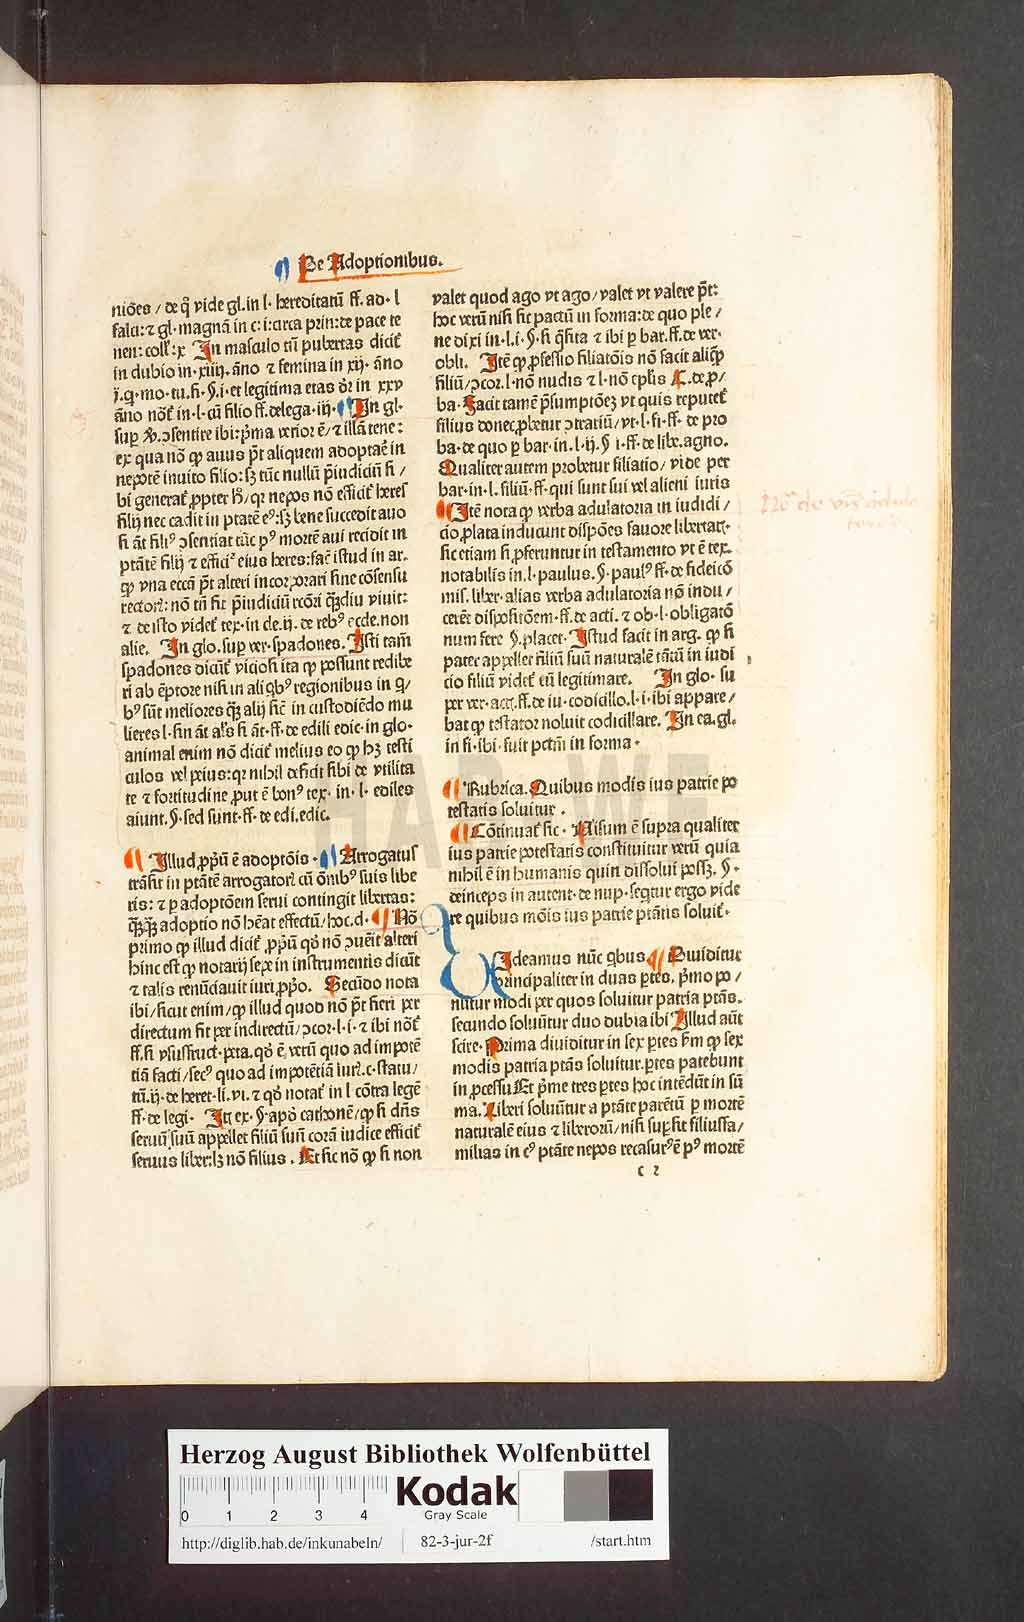 De Adoptionibus.
niões / de qͦ vide gl. in l. hereditatū ff. ad. l
falci: ⁊ gl. magnā in c. i: circa prin: de pace te
nen: coll: x In masculo tn̄ pubertas dicit̄
in dubio in. xiiij. āno ⁊ femina in xij. āno
āno not̄ in. l. cū filio ff. de lega. iij. In gl.
sup ꝟ. ꝯsentire ibi: pͥma verior ē / ⁊ illā tene:
ex qua nō ꝙ auus pt̄ aliquem adoptare in
nepotē inuito filio: sꝫ tūc nullū p̄iudiciū si /
bi generat̄ ꝓpter hͦ / qꝛ nepos nō efficit̄ heres
filij nec cadit in ptātē eꝰ: sꝫ bene succedit auo
si āt filiꝰ ꝯsentiat tūc pꝰ mortē aui recidit in
ptātē filij ⁊ efficiꝛ eius heres: facͥ istud in ar.
ꝙ vna ecc̄a pt̄ alteri incorporari sine cōsensu
rectoꝝ: nō tn̄ fit p̄iudiciū rc̄ōri qͣdiu viuit:
⁊ de isto videt̄ tex. in de. ij. de rebꝰ eccle. non
alie. In glo. sup ver. spadones. Isti tam̄
spadones dicūt̄ viciosi ita ꝙ possunt redibe
ri ab ēptore nisi in aliqͥbꝰ regionibus in q /
bꝰ sūt meliores qͣꝫ alij sic̄ in custodiēdo mu
lieres l. fin āt als̄ si āt. ff. de edili edic. in glo.
animal enim nō dicit̄ melius eo ꝙ hꝫ testi
culos vel peius: qꝛ nihil deficit sibi de vtilita
te ⁊ fortitudine ꝓut ē bonꝰ tex. in. l. ediles
aiunt. §. sed sunt. ff. de edi. edic.
Illud ꝓpͥū ē adoptōis. Arrogatus
trāsit in ptātē arrogatoꝝ cū ōmibꝰ suis libe
ris: ⁊ p adoptōem serui contingit libertas:
qͣꝫqͣꝫ adoptio nō hēat effectū / hoc. d. Nō
primo ꝙ illud dicit̄ ꝓpͥū qͦd nō ꝯuēit alteri
hinc est ꝙ notarij sepe in instrumentis dicūt
⁊ talis renūciauit iuri ꝓpͥo. Secūdo nota
ibi / sicut enim / ꝙ illud quod nō pt̄ fieri per
directum fit per indirectū / ꝯcor. l. i. ⁊ ibi not̄
ff. si vsusfruct. peta. qͦd ē verū quo ad impotē
tiā facti / secꝰ quo ad impotētiā iuris. c. statu /
tū. ij. de heret. li. vi. ⁊ qͦd notat̄ in l cōtra legē
ff. de legi. Itē ex. §. apͦd cathonē / ꝙ si dn̄s
seruū suū appellet filiū suū corā iudice efficit̄
seruus liber: lꝫ nō filius. Et sic nō ꝙ si non
valet quod ago vt ago / valet vt valere pt̄:
hoc verū nisi fit pactū in forma: de quo ple /
ne dixi in. l. i. §. si qͣsita ⁊ ibi ꝑ bar. ff. de ver.
obli. Itē ꝙ ꝓfessio filiatōis nō facit aliqͥꝫ
filiū / ꝯcor. l. nō nudis ⁊ l. nō epl̄is C. de ꝓ /
ba. Facit tamē p̄sumptōeꝫ vt quis reputet̄
filius donec ꝓbetur ꝯtrariū / vt. l. fi. ff. de pro
ba. de quo ꝑ bar. in. l. ij. § i. ff. de libe. agno.
Qualiter autem probetur filiatio / vide per
bar. in. l. filiū. ff. qui sunt sui vel alieni iuris
Itē nota ꝙ verba adulatoria in iudici /
cio ꝓlata inducunt dispōes fauore libertat̄.
sic etiam si ꝓferuntur in testamento vt ē tex.
notabilis in. l. paulus. §. paulꝰ ff. de fideicō
mis. liber. alias verba adulatoria nō indu /
cerēt dispositōem. ff. de acti. ⁊ ob. l. obligatō
num fere §. placet. Istud facit in arg. ꝙ si
pater appellet filiū suū naturalē tātū in iudi
cio filiū videt̄ eū legitimare. In glo. su
per ver. acti. ff. de iu. codicillo. l. i. ibi appare /
bat ꝙ testator noluit codicillare. In ea. gl.
in fi. ibi. fuit pctm̄ in forma.
Rubrica. Quibus modis ius patrie po
testatis soluitur.
Cōtinuat̄ sic. Uisum ē supra qualiter
ius patrie potestatis constituitur verū quia
nihil ē in humanis quin dissolui possꝫ. §.
deinceps in autent. de nup. seqͥtur ergo vide
re quibus mōis ius patrie ptātis soluit̄.
Uideamus nūc qͥbus Diuiditur
principaliter in duas ptes. pͥmo po /
nūtur modi per quos soluitur patria ptās.
secundo soluūtur duo dubia ibi Illud aūt
scire. Prima diuiditur in sex ptes sm̄ ꝙ sex
modis patria ptās soluitur. ptes patebunt
in ꝓcessu Et pͥme tres ptes hoc intēdūt in sū
ma. Liberi soluūtur a ptāte parētū p mortē
naturalē eius ⁊ liberorū / nisi supsit filiusfa /
milias in cꝰ ptāte nepos recasurꝰ ē pꝰ mortē
c 2
Herzog August Bibliothek Wolfenbüttel
0 1 2 3 4
Kodak
Gray Scale
http://diglib.hab.de/inkunabeln/ 82-3-jur-2f /start.htm
HAB WF